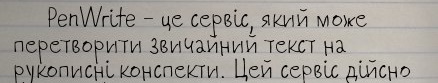 PenWrite – це сервіс, який може
перетворити звичайний текст на
рукописні конспекти. Цей сервіс дійсно